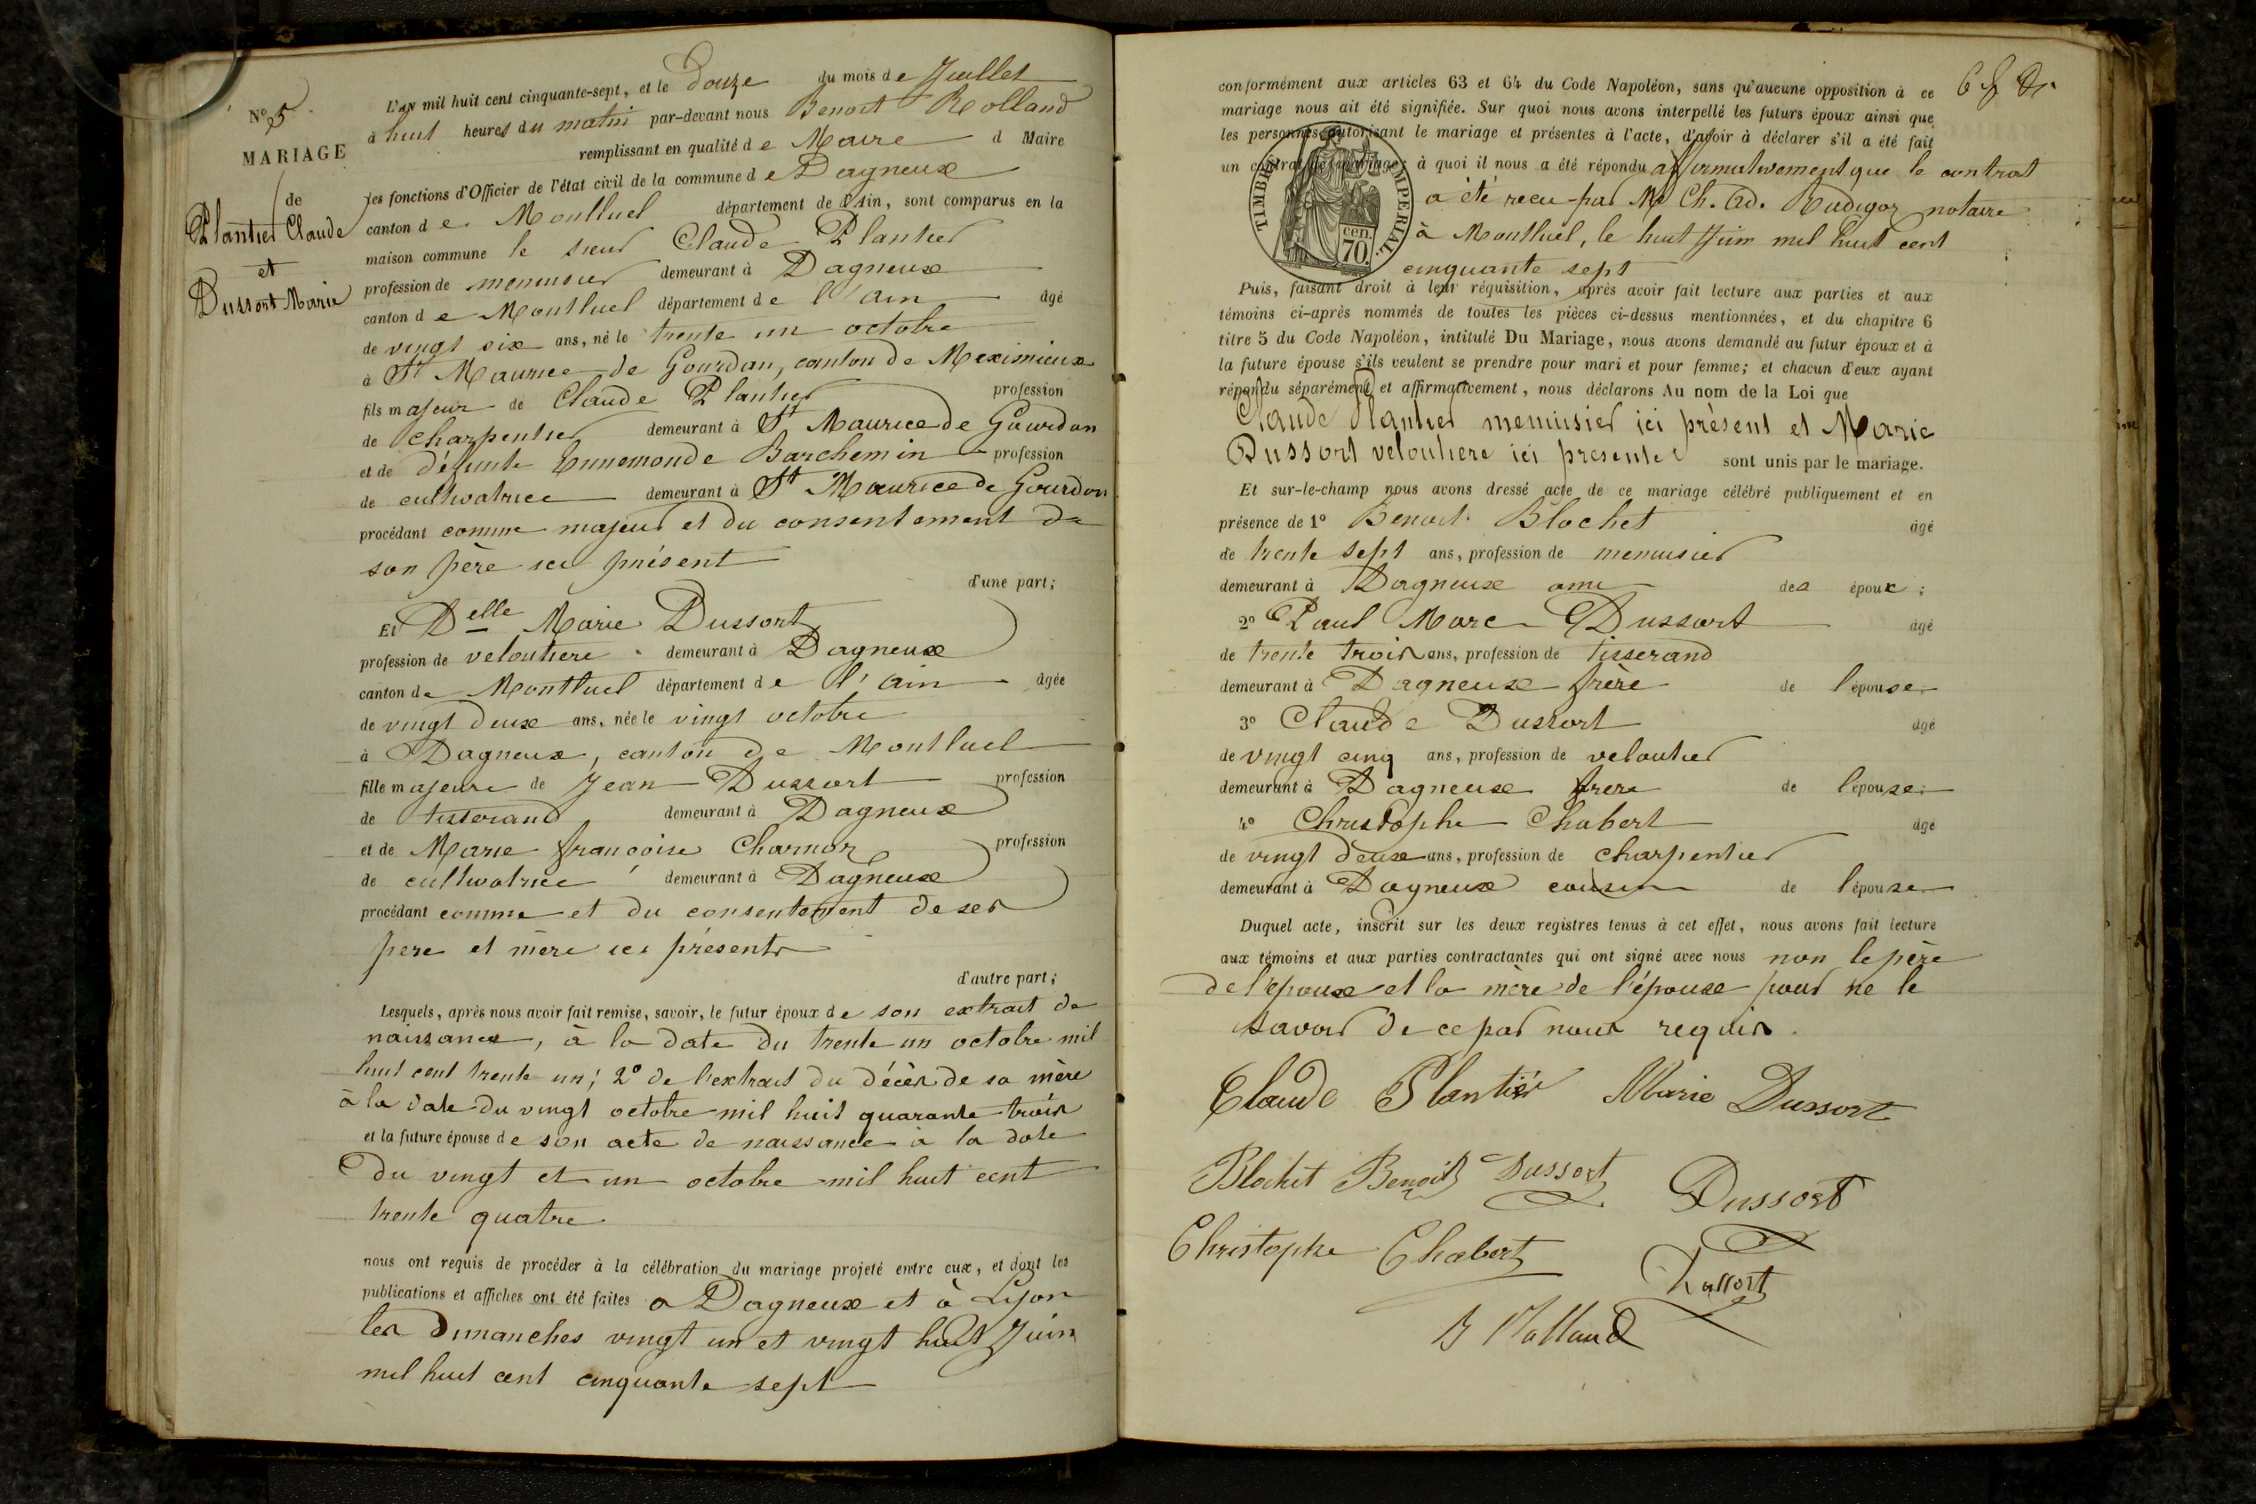 N° 5
MARIAGE
de
Plantier Claude
et
Dussort Marie
L'an mil huit cent cinquante-sept, et le Douze du mois de Juillet
à huit heures du matin par-devant nous Benoit Rolland
remplissant en qualité de Maire d Maire
les fonctions d'Officier de l'état civil de la commune de Dagneux
canton de Montluel département de l'Ain, sont comparus en la
maison commune le sieur Claude Plantier
profession de menuisier demeurant à Dagneux
canton de Montluel département de l'ain âgé
de vingt six ans, né le trente un octobre
à St Maurice de Gourdan, canton de Meximieux
fils majeur de Claude Plantier profession
de charpentier demeurant à St Maurice de Gourdan
et de défunte Ennemonde Barchemin profession
de cultivatrice demeurant à St Maurice de Gourdan
procédant comme majeur et du consentement de
son père ici présent
d'une part;
Et Delle Marie Dussort
profession de veloutiere demeurant à Dagneux
canton de Montluel département de l'ain âgée
de vingt deux ans, née le vingt octobre
à Dagneux, canton de Montluel
fille majeure de Jean Dussort profession
de tisserand demeurant à Dagneux
et de Marie françoise Charnor profession
de cultivatrice demeurant à Dagneux
procédant comme et du consentement de ses
pere et mère ici présents
d'autre part;
Lesquels, après nous avoir fait remise, savoir, le futur époux de son extrait de
naissance, à la date du trente un octobre mil
huit cent trente un; 2° de l'extrait du décès de sa mère
à la date du vingt octobre mil huit quarante trois
et la future épouse de son acte de naissance à la date
du vingt et un octobre mil huit cent
trente quatre
nous ont requis de procéder à la célébration du mariage projeté entre eux, et dont les
publications et affiches ont été faites a Dagneux et à Lyon
les dimanches vingt un et vingt huit Juin
mil huit cent cinquante sept
conformément aux articles 63 et 64 du Code Napoléon, sans qu'aucune opposition à ce
mariage nous ait été signifiée. Sur quoi nous avons interpellé les futurs époux ainsi que
les personnes autorisant le mariage et présentes à l'acte, d'avoir à déclarer s'il a été fait
un contrat de mariage; à quoi il nous a été répondu affirmativement que le contrat
a été reçu par Me Ch. Ad. Rudigoz notaire
à Montluel, le huit Juin mil huit cent
cinquante sept
TIMBRE IMPERIAL.
70. cen.
Puis, faisant droit à leur réquisition, après avoir fait lecture aux parties et aux
témoins ci-après nommés de toutes les pièces ci-dessus mentionnées, et du chapitre 6
titre 5 du Code Napoléon, intitulé Du Mariage, nous avons demandé au futur époux et à
la future épouse s'ils veulent se prendre pour mari et pour femme; et chacun d'eux ayant
répondu séparément et affirmativement, nous déclarons Au nom de la Loi que
Claude Plantier menuisier ici présent et Marie
Dussort veloutiere ici presente sont unis par le mariage.
Et sur-le-champ nous avons dressé acte de ce mariage célébré publiquement et en
présence de 1° Benoit Blochet âgé
de trente sept ans, profession de menuisier
demeurant à Dagneux ami des époux;
2° Paul Marc Dussort âgé
de trente trois ans, profession de tisserand
demeurant à Dagneux frère de l'épouse
3° Claude Dussort âgé
de vingt cinq ans, profession de veloutier
demeurant à Dagneux frère de l'épouse;
4° Christophe Chabert âgé
de vingt deux ans, profession de charpentier
demeurant à Dagneux cousin de l'épouse
Duquel acte, inscrit sur les deux registres tenus à cet effet, nous avons fait lecture
aux témoins et aux parties contractantes qui ont signé avec nous non le père
de l'époux et la mère de l'épouse pour ne le
savoir de ce par nous requis.
Claude Plantier Marie Dussort
Blochet Benoit Dussort Dussort
Christophe Chabert
Dussort
B Rolland